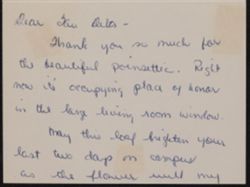 Dear
Thank you so much for
the beautiful poinsettia. Right
now it's occupying place of honor
in the large living room window.
May this loaf brighten your
last two days on campus
as the flower will my